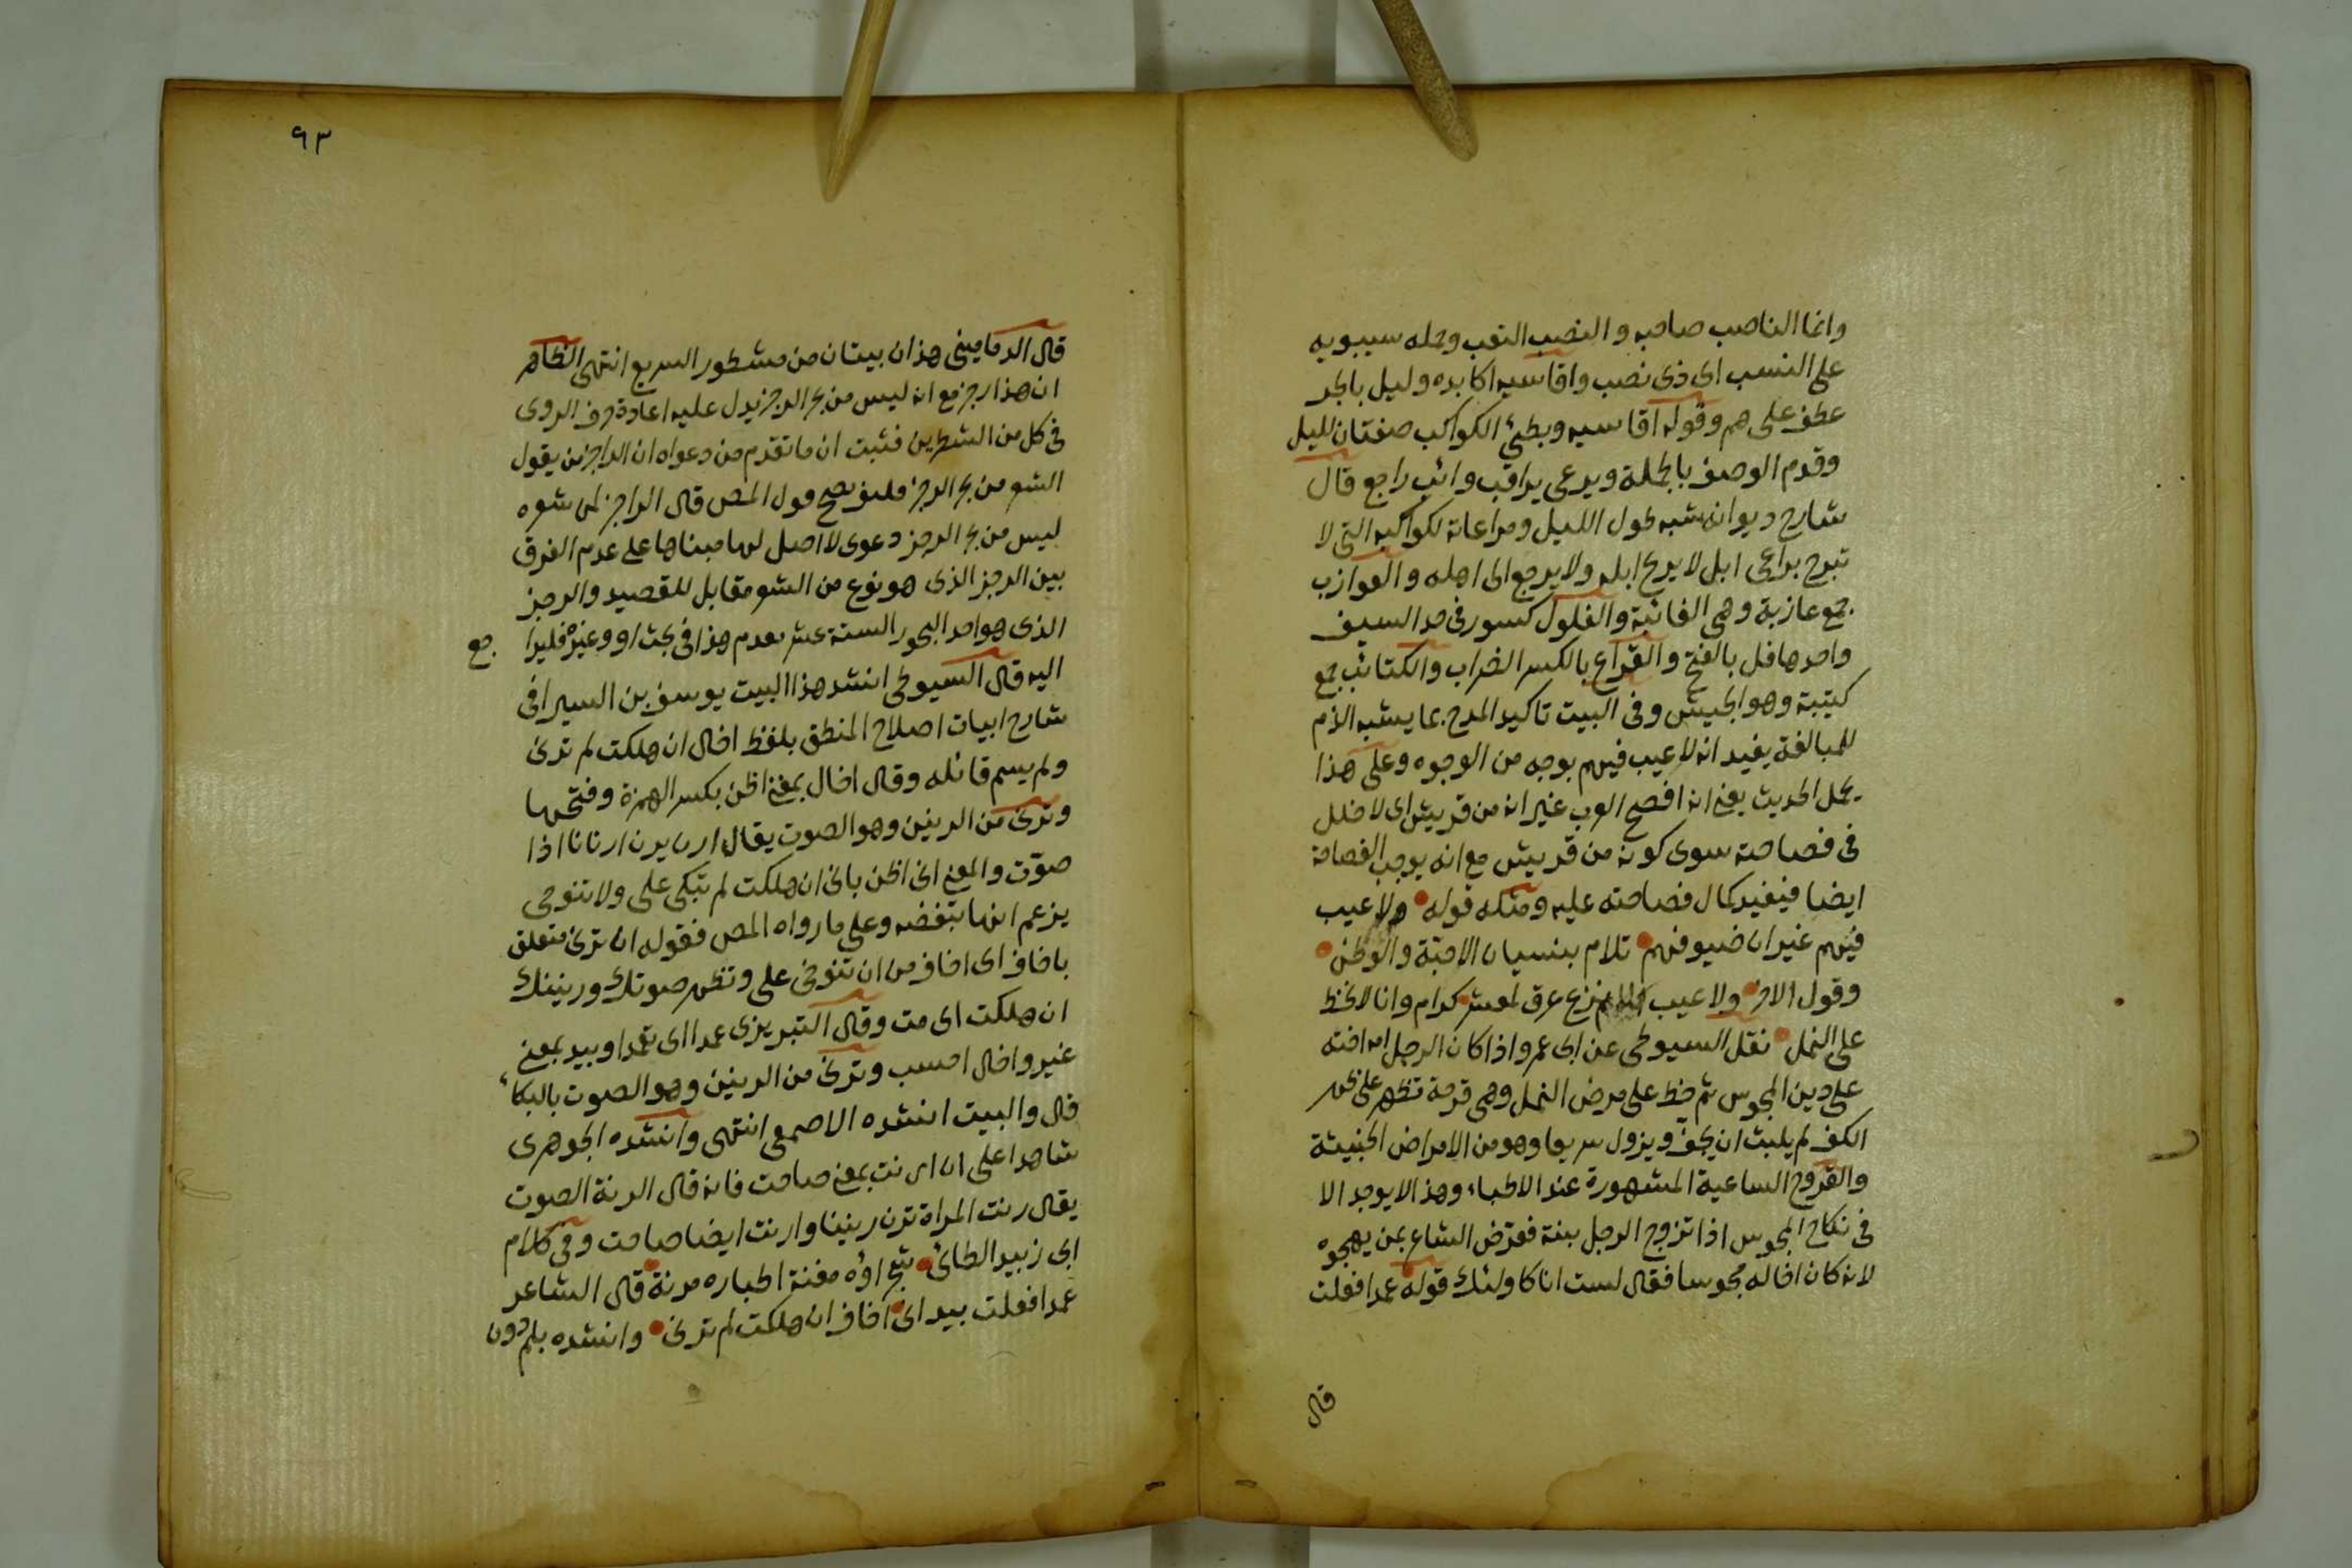 وانما الناصب صاحبه والنصب التعب وحمله سيبويه
على النسب اى ذى نصب واقاسيه اكابده وليل بالجر
عطف على هم وقوله اقاسيه وبطئ الكواكب صفتان لليل
وقدم الوصف بالجملة ويرعى يراقب وائب راجع قال
شارح ديوانه شبه طول الليل ومراعاته لكواكبه التى لا
تبرح براعى ابل لا يريح ابله ولا يرجع الى اهله والعوازب
جمع عازبة وهى الغائبة والفلول كسور فى حد السيف
واحدها فل بالفتح والقراع بالكسر الضراب والكتائب جمع
كتيبة وهو الجيش وفى البيت تاكيد المدح بما يشبه الذم
للمبالغة يفيد انه لا عيب فيهم بوجه من الوجوه وعلى هذا
يحمل الحديث يعنى انه افصح العرب غير انه من قريش اى لا خلل
فى فصاحته سوى كونه من قريش مع انه يوجب الفصاحة
ايضا فيفيد كمال فصاحته عليه ومثله قوله ولا عيب
فيهم غير ان ضيوفهم تلام بنسيان الاحبة والوطن
وقول الاخر ولا عيب نزع عرق لمعشر كرام وانا لا نخط
على النمل نقل السيوطى عن ابى عمرو اذا كان الرجل امه اخته
على دين المجوس ثم خط على مرض النمل وهى قرحة تظهر على ظهر
الكف لم يلبث ان يجف ويزول سريعا وهو من الامراض الخبيثة
والقروح الساعية المشهورة عند الاطباء وهذا لا يوجد الا
فى نكاح المجوس اذا تزوج الرجل بنته فعرض الشاعر بمن يهجوه
لانه كان اخاله مجوسا فقال لست انا كاولئك قوله عمدا فعلت
قال
٩٣
قال الدمامينى هذان بيتان من مشطور السريع انتهى الظاهر
ان هذا رجز مع انه ليس من بحر الرجز يدل عليه اعادة حرف الروى
فى كل من الشطرين فثبت ان ما تقدم من دعواه ان الراجز من يقول
الشعر من بحر الرجز فليف يصح قول المص قال الراجز لمن شعره
ليس من بحر الرجز دعوى لا اصل لها مبناها على عدم الفرق
بين الرجز الذى هو نوع من الشعر مقابل للقصيد والرجز
الذى هو احد البحور الستة عشر تقدم هذا فى بحث او وغيره فليراجع
اليه قال السيوطى انشد هذا البيت يوسف بن السيرافى
شارح ابيات اصلاح المنطق بلفظ اخال ان هلكت لم ترنى
ولم يسم قائله وقال اخال بمعنى اظن بكسر الهمزة وفتحها
وترنى من الرنين وهو الصوت يقال ارن يرن ارنانا اذا
صوّت والمعنى انى اظن بانى ان هلكت لم تبكى على ولا تنوحى
يزعم انها تبغضه وعلى ما رواه المص فقوله ان ترنى متعلق
باخاف اى اخاف من ان تنوحى على وتظهر صوتك ورنينك
ان هلكت اى مت وقال التبريزى عمدا اى تعمدا وبيد بمعنى
غير واخال احسب وترنى من الرنين وهو الصوت بالبكاء
قال والبيت انشده الاصمعى انتهى وانشده الجوهرى
شاهدا على ان ارنت بمعنى صاحت فانه قال الرنة الصوت
يقال رنت المراة ترن رنينا وارنت ايضا صاحت وفى كلام
ابى زبيد الطائى شجراؤه مغنة اطياره مرنة قال الشاعر
عمدا فعلت بيد انى اخاف ان هلكت لم ترنى وانشده بلم دون